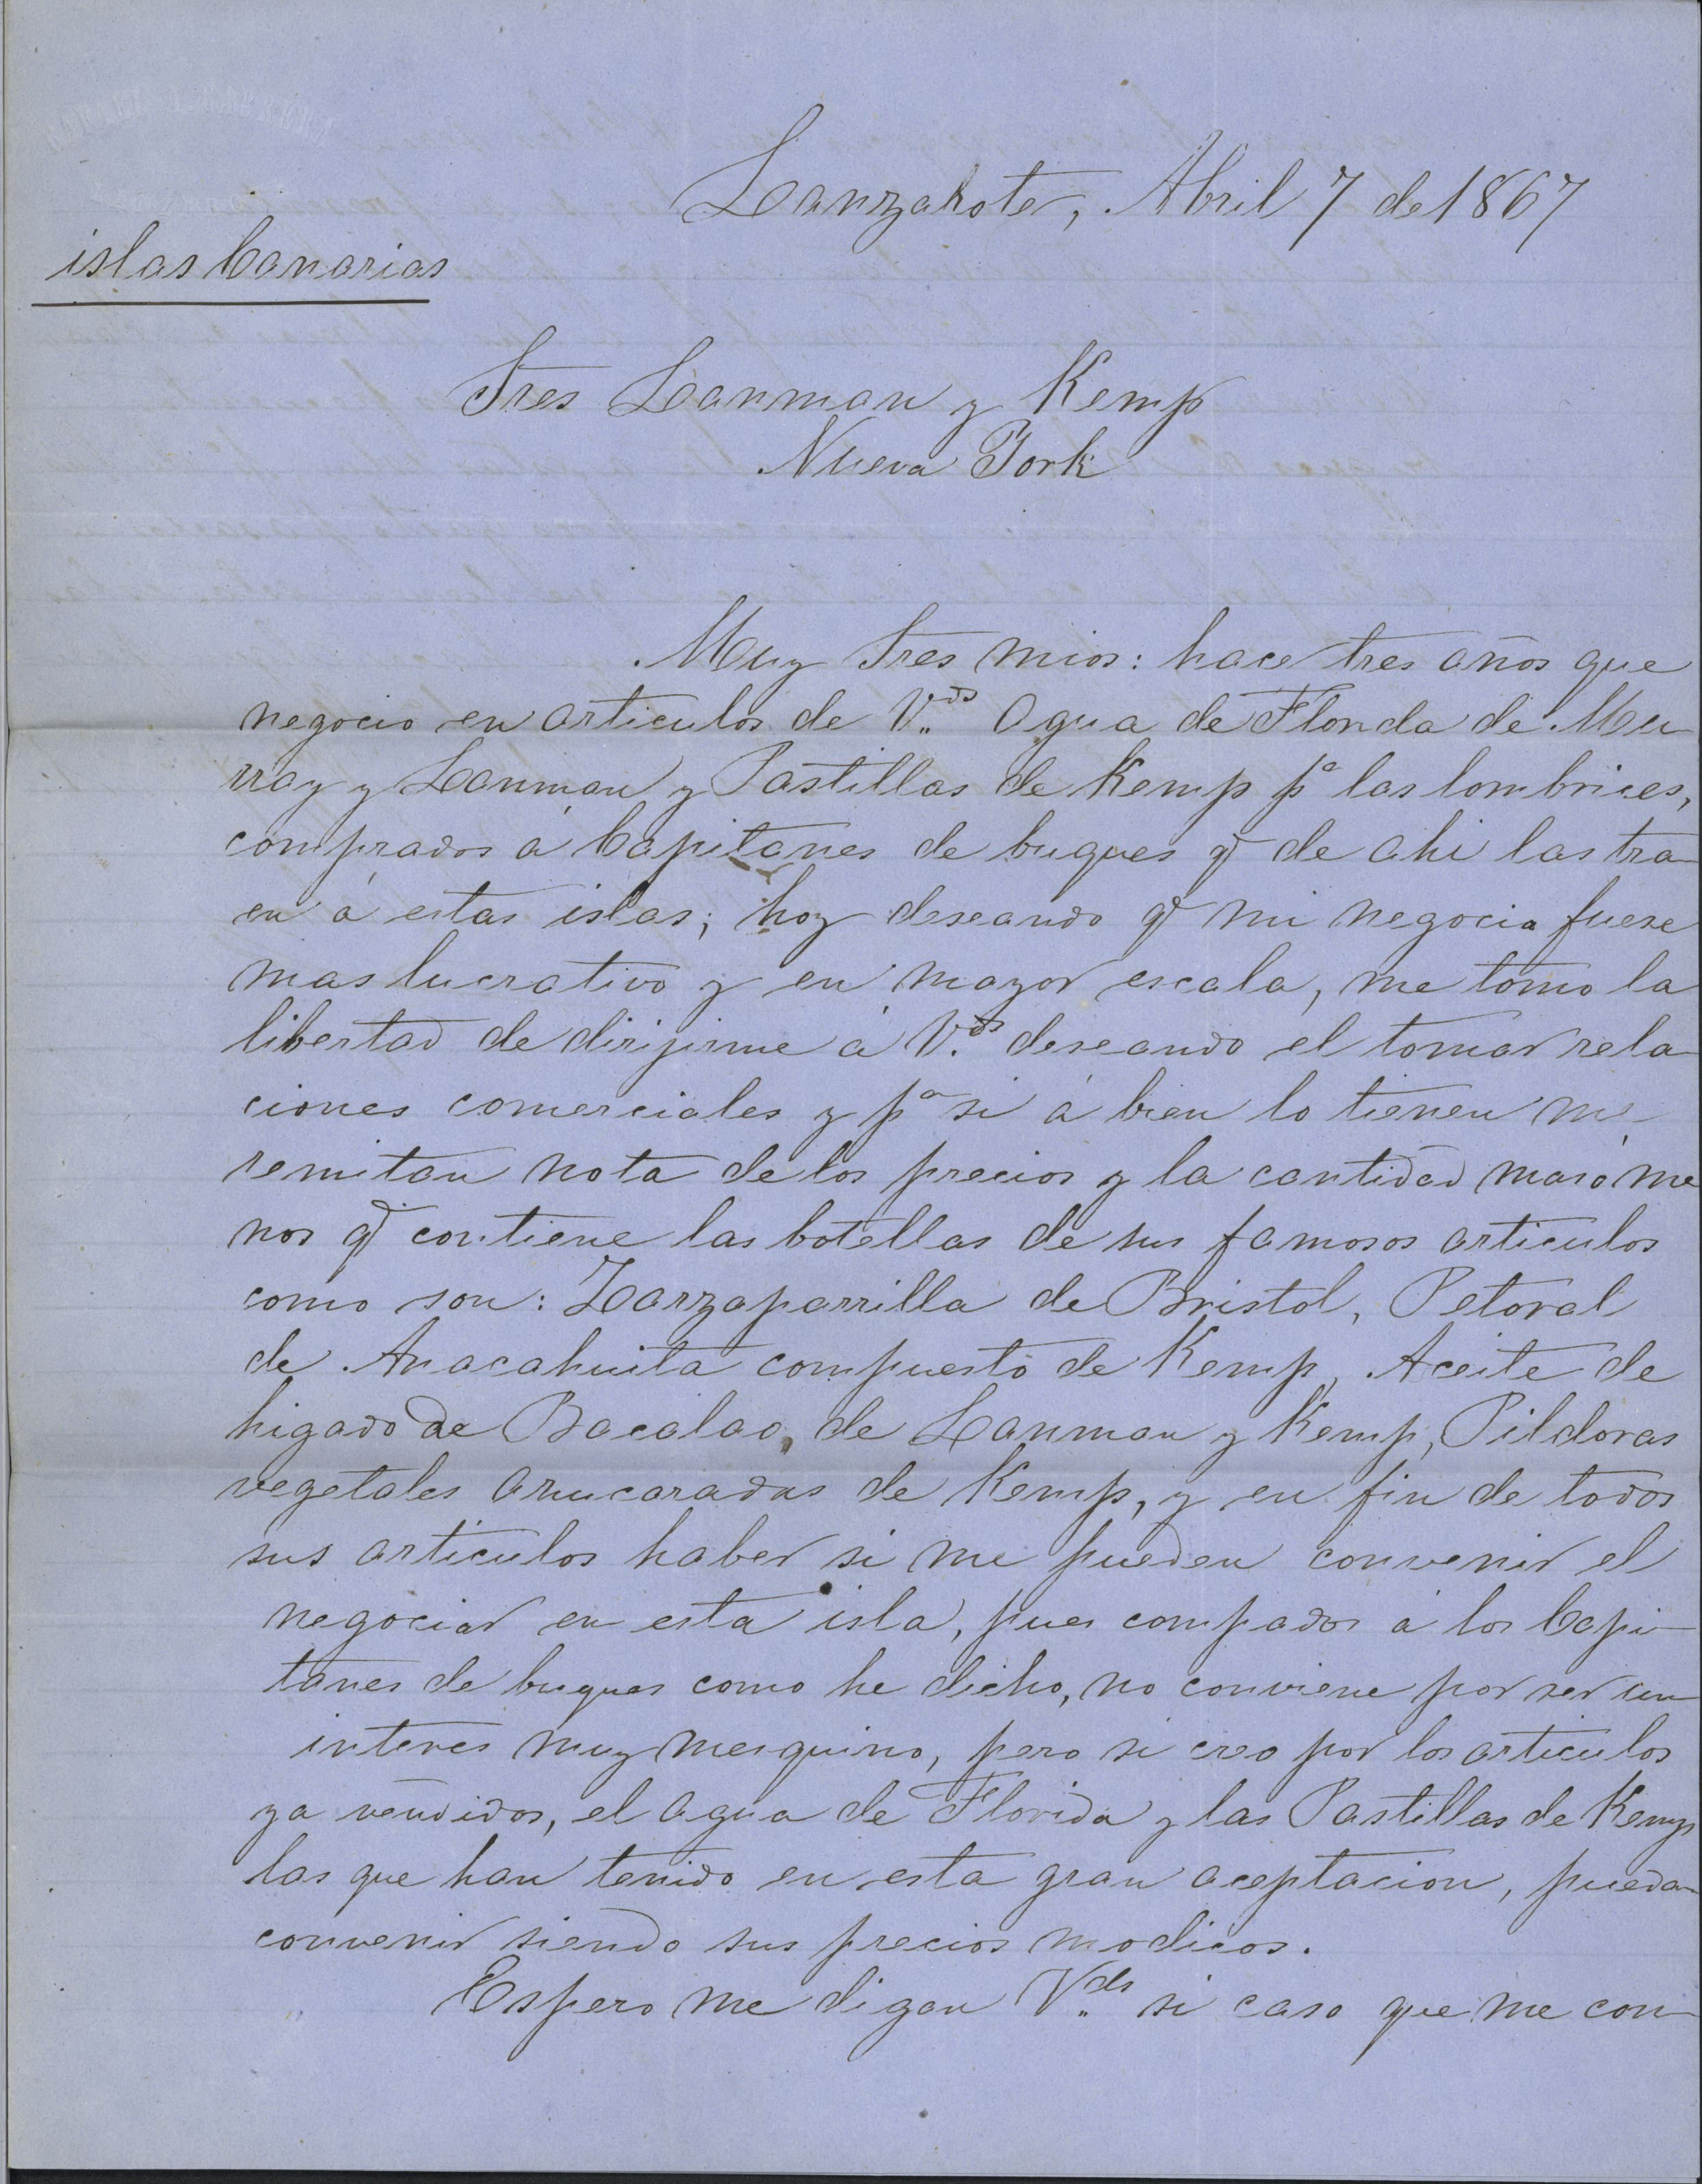 Lanzarote, Abril 7 de 1867
islas Canarias
Sres Lanman y Kemp
Nueva York
Muy Sres mios: hace tres años que
negocio en articulos de V.ds Agua de Florida de Mu
rray y Lanman y Pastillas de Kemp pª las lombrices,
comprados á Capitanes de buques q̃ de ahi las tra
en á estas islas; hoy deseando q̃ mi negocio fuese
mas lucrativo y en mayor escala, me tomo la
libertad de dirijirme á V.ds deseando el tomar rela
ciones comerciales y pª si á bien lo tienen me
remitan nota de los precios y la cantidad mas ó me
nos q̃ contiene las botellas de sus famosos articulos
como son: Zarzaparrilla de Bristol, Petoral
de Anacahuita compuesto de Kemp, Aceite de
higado de Bacalao, de Lanman y Kemp, Pildoras
vegetales azucaradas de Kemp, y en fin de todos
sus articulos haber si me pueden convenir el
negociar en esta isla, pues compados á los Capi-
tanes de buques como he dicho, no conviene por ser un
interes muy mesquino, pero si creo por los articulos
ya vendidos, el agua de Florida y las Pastillas de Kemp
las que han tenido en esta gran aceptacion, puedan
convenir siendo sus precios modicos.
Espero me digan V.ds si caso que me con-